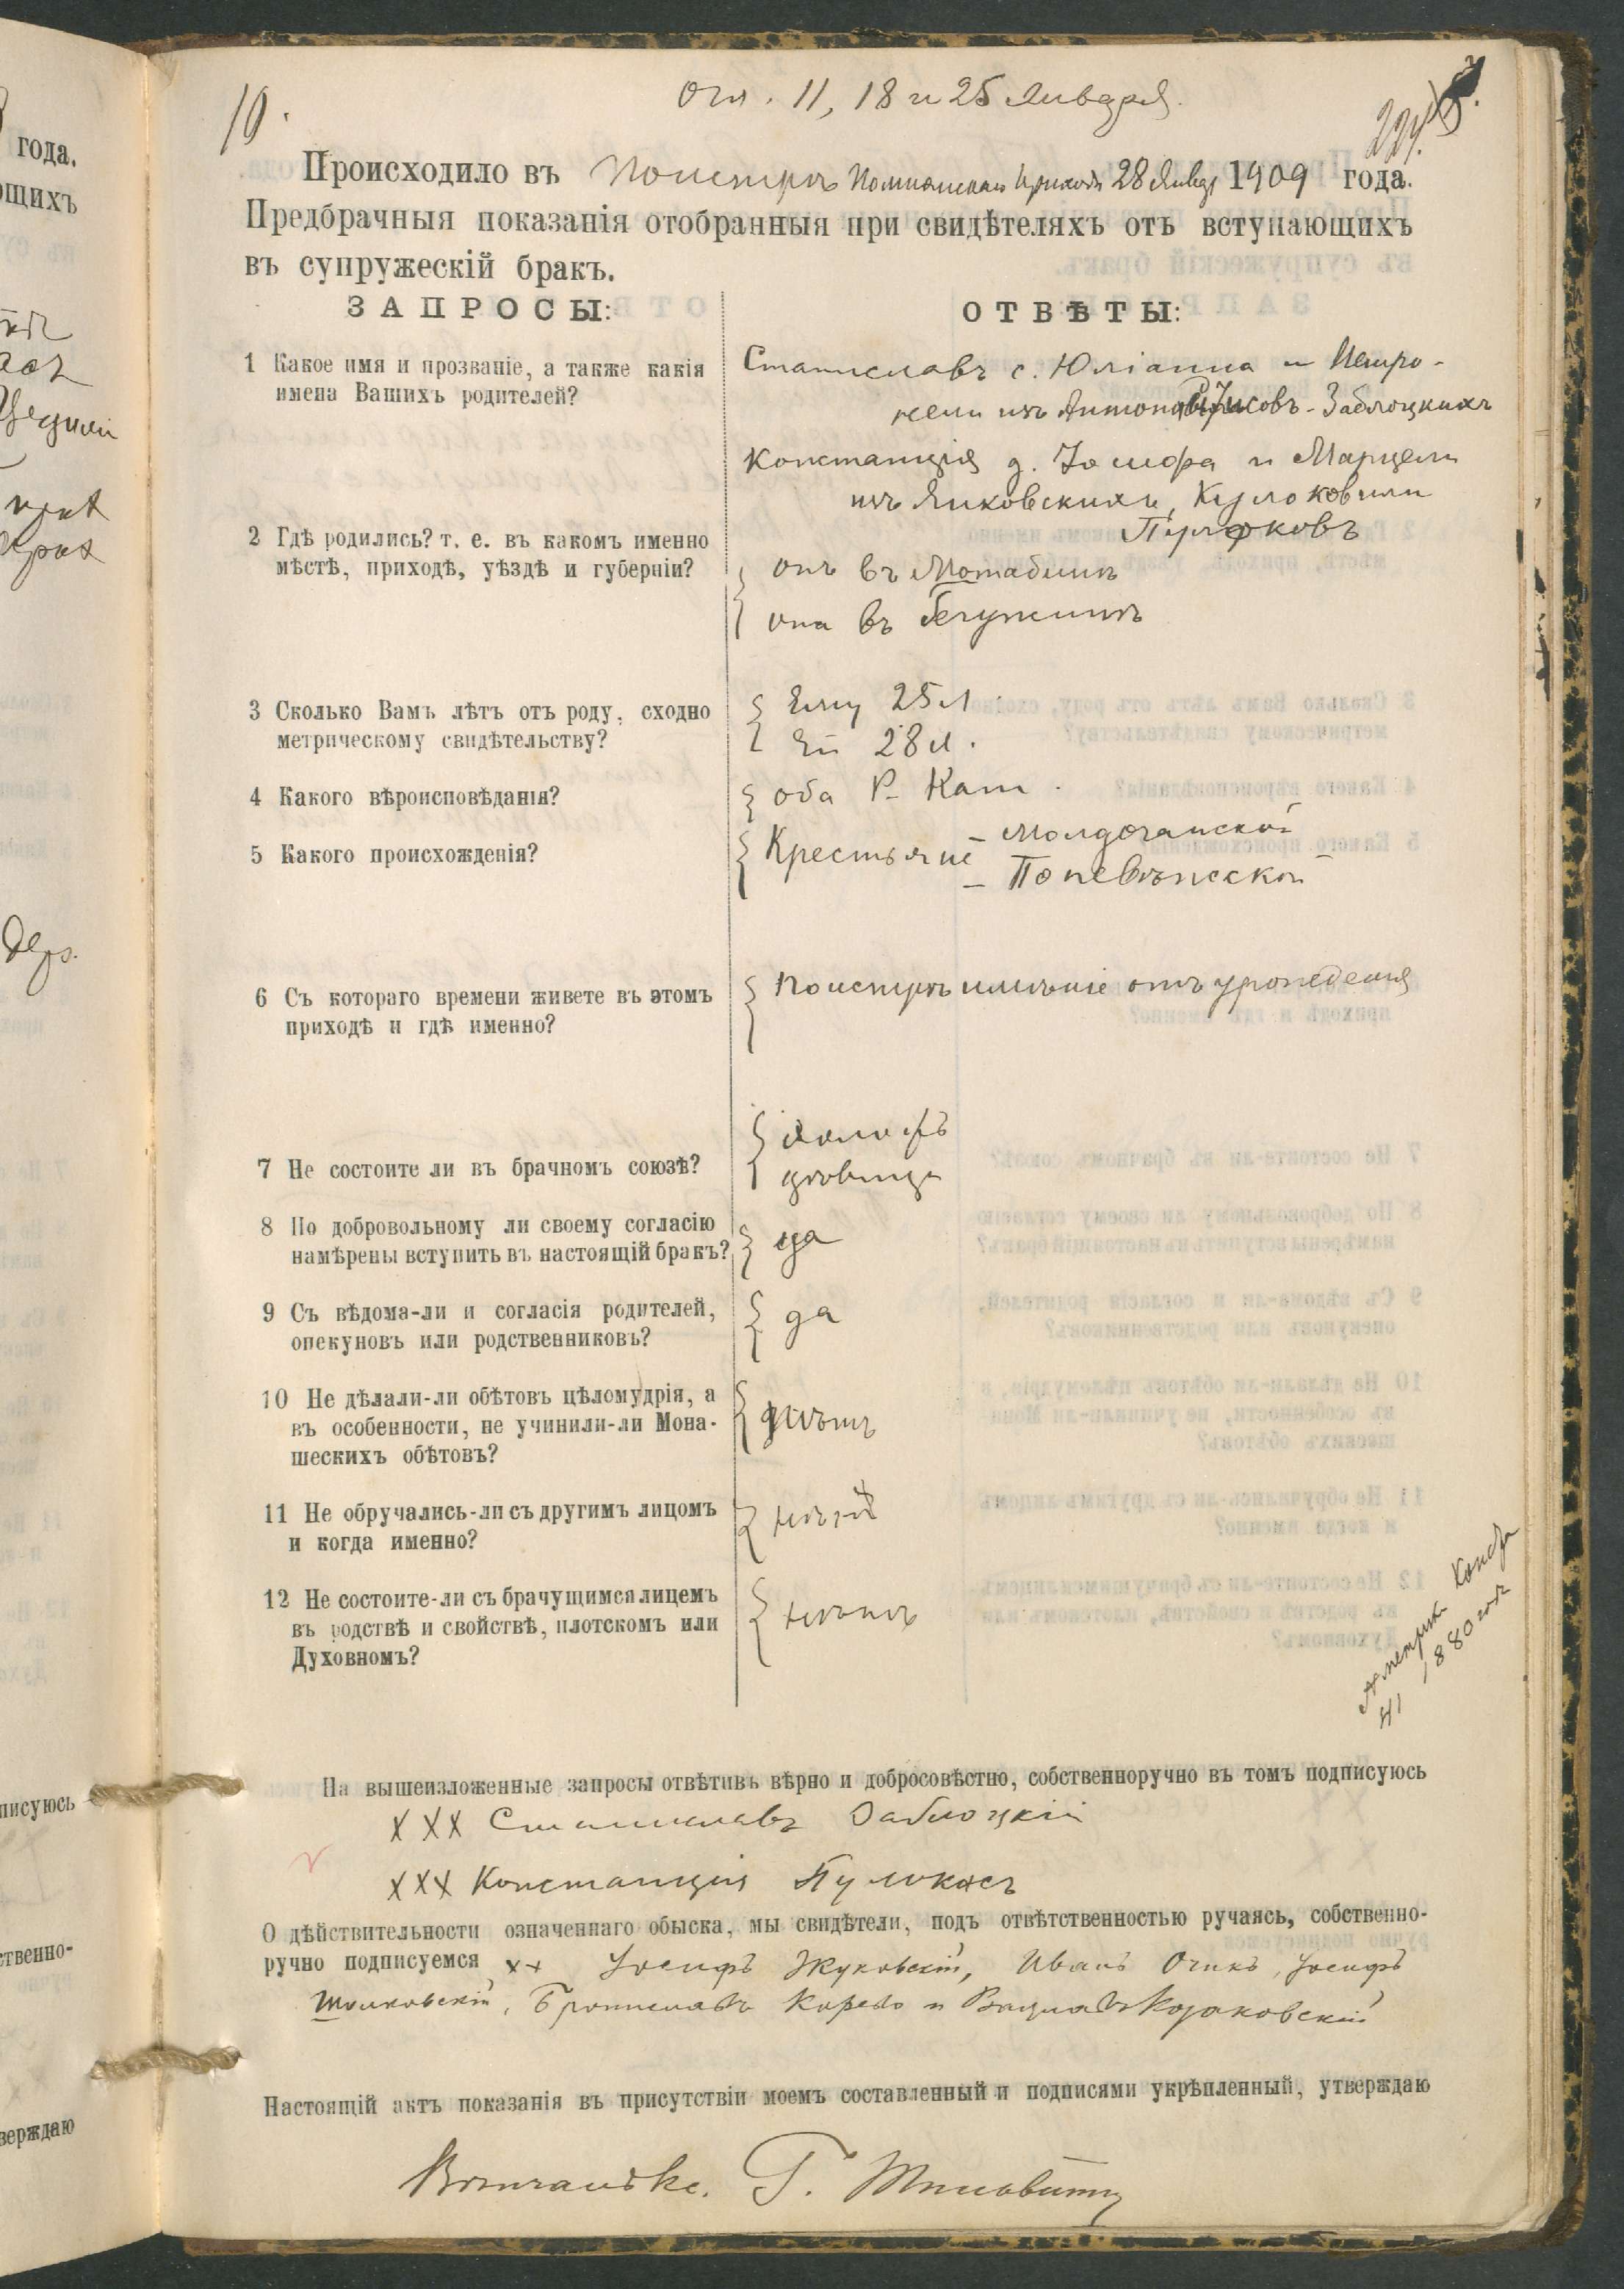 10.
Огл. 11, 18 и 25 Января.
224.
Происходило въ Поистрѣ 28 Январ 1909 года.
Предбрачныя показанія отобранныя при свидѣтеляхъ отъ вступающихъ
въ супружескій бракъ.
ЗАПРОСЫ:
ОТВѢТЫ:
1 Какое имя и прозваніе, а также какія
имена Вашихъ родителей?
Станиславъ с. Юліана и Петро-
нели изъ Заблоцкихъ
Констанція д. Іосифа и Марцели
изъ Янковскихъ,
2 Гдѣ родились? т. е. въ какомъ именно
мѣстѣ, приходѣ, уѣздѣ и губерніи?
онъ въ
она въ
3 Сколько Вамъ лѣтъ отъ роду, сходно
метрическому свидѣтельству?
Ему 25 л
Ей 28 л.
4 Какого вѣроисповѣданія?
оба Р- Кат.
5 Какого происхожденія?
Крестьяне
- Поневѣжской
6 Съ котораго времени живете въ этомъ
приходѣ и гдѣ именно?
Поистрѣ имѣніе отъ урожденія
7 Не состоите ли въ брачномъ союзѣ?
холостъ
дѣвица
8 По добровольному ли своему согласію
намѣрены вступить въ настоящій бракъ?
да
9 Съ вѣдома-ли и согласія родителей,
опекуновъ или родственниковъ?
да
10 Не дѣлали-ли обѣтовъ цѣломудрія, а
въ особенности, не учинили-ли Мона-
шескихъ обѣтовъ?
нѣтъ
11 Не обручались-ли съ другимъ лицомъ
и когда именно?
нѣтъ
12 Не состоите-ли съ брачущимся лицемъ
въ родствѣ и свойствѣ, плотскомъ или
Духовномъ?
нѣтъ
метрика
41 1880 года
На вышеизложенные запросы отвѣтивъ вѣрно и добросовѣстно, собственноручно въ томъ подписуюсь
ХХХ Станиславъ Заблоцкій
ХХХ Констанція Пулокасъ
О дѣйствительности означеннаго обыска, мы свидѣтели, подъ отвѣтственностью ручаясь, собственно-
ручно подписуемся хх Іосифъ Жуковскій, Иванъ Очикъ, Іосифъ
Брониславъ Корево и Вацлавъ
Настоящій актъ показанія въ присутствіи моемъ составленный и подписями укрѣпленный, утверждаю